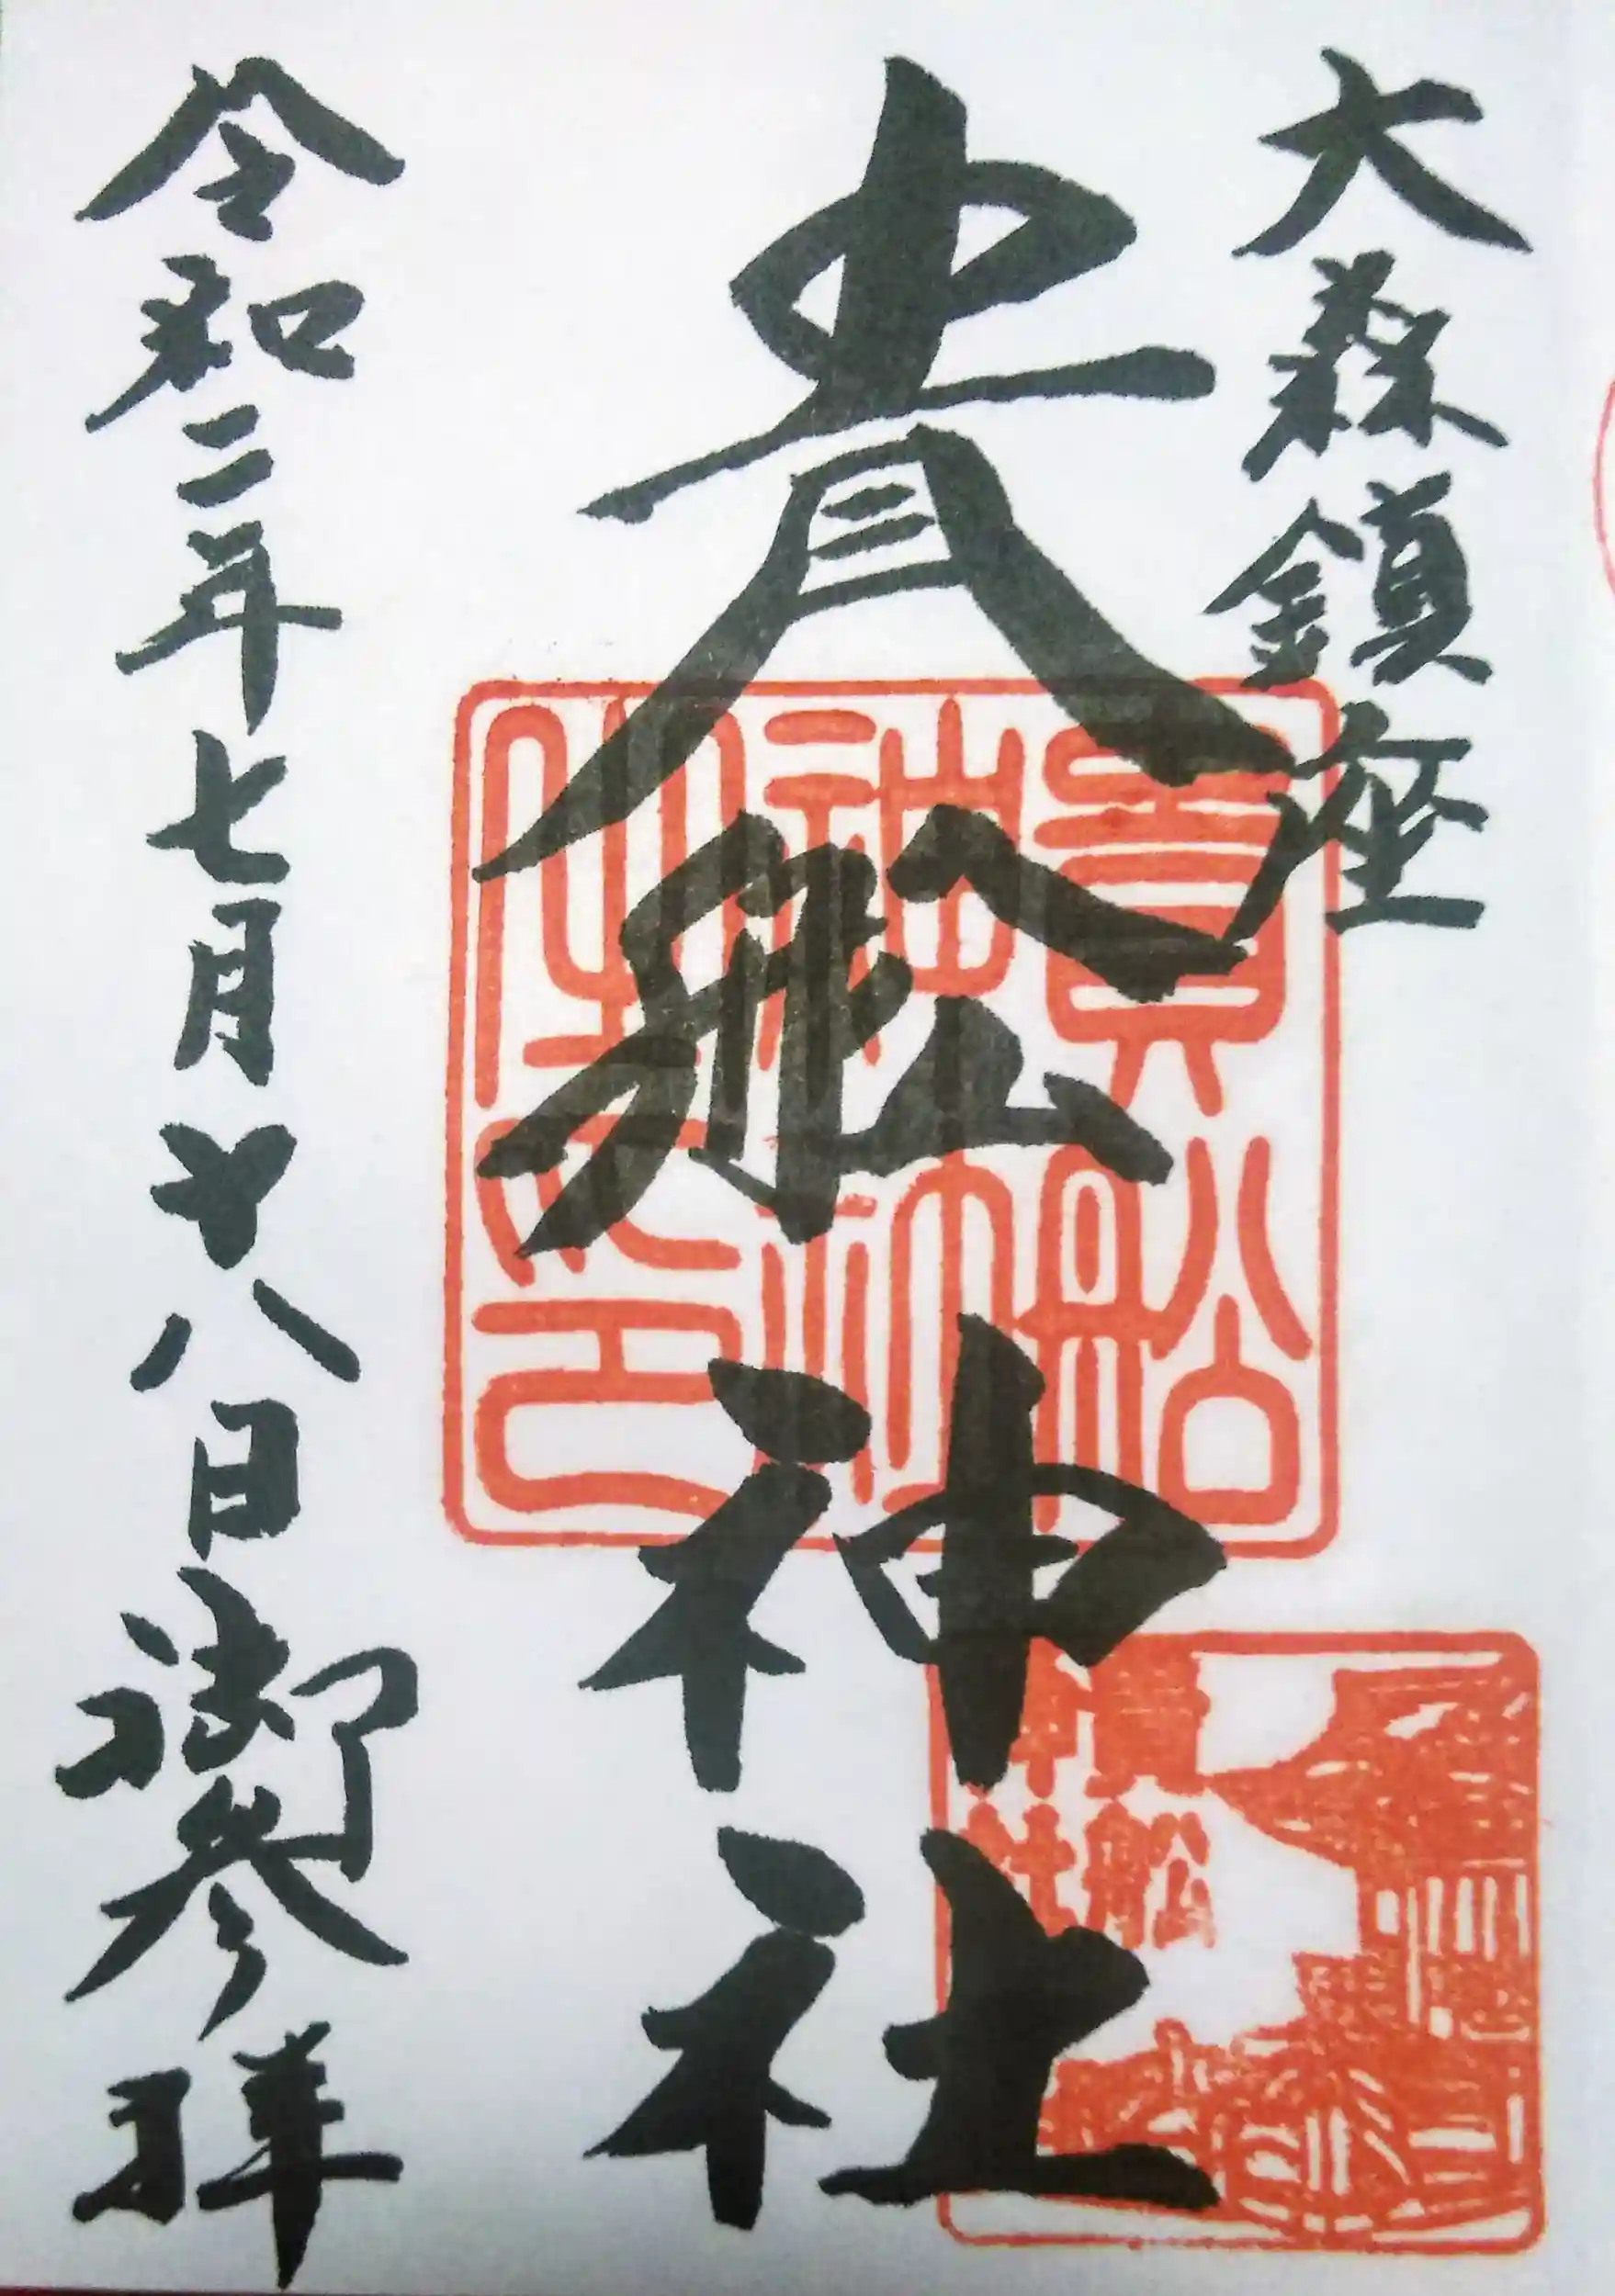 大森鎮座
貴船神社
令和二年七月十八日御参拝
貴船神社之印
貴船
神社